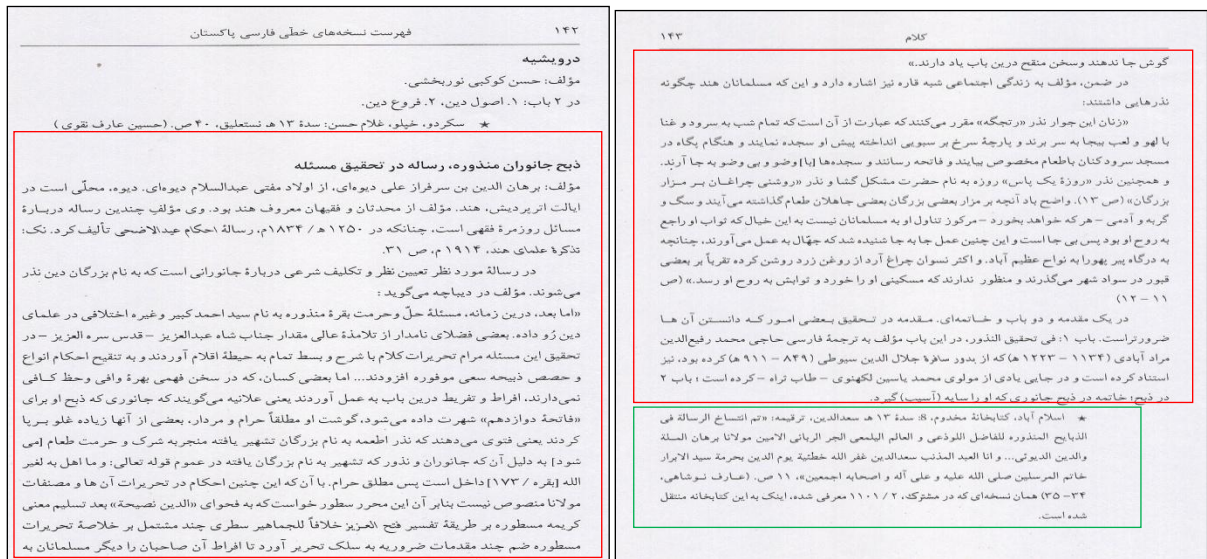 ۱۴۲ فهرست نسخه‌های خطّی فارسی پاکستان
درویشیه
مؤلف: حسن کوکبی نوربخشی.
در ۲ باب: ۱. اصول دین، ۲. فروع دین.
★ سکردو، خپلو، غلام حسن: سدۀ ۱۳ هـ نستعلیق، ۴۰ ص. (حسین عارف نقوی)
ذبح جانوران منذوره، رساله در تحقیق مسئله
مؤلف: برهان الدین بن سرفراز علی دیوه‌ای، از اولاد مفتی عبدالسلام دیوه‌ای. دیوه، محلّی است در
ایالت اترپردیش، هند. مؤلف از محدثان و فقیهان معروف هند بود. وی مؤلفِ چندین رساله دربارۀ
مسائل روزمرۀ فقهی است، چنانکه در ۱۲۵۰ هـ / ۱۸۳۴م، رسالۀ احکام عیدالاضحی تألیف کرد. نک:
تذکرۀ علمای هند، ۱۹۱۴م، ص ۳۱.
در رسالۀ مورد نظر تعیین نظر و تکلیف شرعی دربارۀ جانورانی است که به نام بزرگان دین نذر
می‌شوند. مؤلف در دیباچه می‌گوید :
«اما بعد، درین زمانه، مسئلۀ حلّ و حرمت بقرۀ منذوره به نام سید احمد کبیر وغیره اختلافی در علمای
دین رُو داده. بعضی فضلای نامدار از تلامذۀ عالی مقدار جناب شاه عبدالعزیز – قدس سره العزیز – در
تحقیق این مسئله مرام تحریرات کلام با شرح و بسط تمام به حیطۀ اقلام آوردند و به تنقیح احکام انواع
و حصص ذبیحه سعی موفوره افزودند... اما بعضی کسان، که در سخن فهمی بهرۀ وافی وحظ کـافی
نمی‌دارند، افراط و تفریط درین باب به عمل آوردند یعنی علانیه می‌گویند که جانوری که ذبح او برای
«فاتحۀ دوازدهم» شهرت داده می‌شود، گوشت او مطلقاً حرام و مردار، بعضی از آنها زیاده غلو بـرپا
کردند یعنی فتوی می‌دهند که نذر اطعمه به نام بزرگان تشهیر یافته منجربه شرک و حرمت طعام [می
شود] به دلیل آن که جانوران و نذور که تشهیر به نام بزرگان یافته در عموم قوله تعالی: و ما اهل به لغیر
الله [بقره / ۱۷۳] داخل است پس مطلق حرام. با آن که این چنین احکام در تحریرات آن ها و مصنفات
مولانا منصوص نیست بنابر آن این محرر سطور خواست که به فحوای «الدین نصیحة» بعد تسلیم معنی
کریمه مسطوره بر طریقۀ تفسیر فتح العزیز خلافاً للجماهیر سطری چند مشتمل بر خلاصۀ تحریرات
مسطوره ضم چند مقدمات ضروریه به سلک تحریر آورد تا افراط آن صاحبان را دیگر مسلمانان به
کلام ۱۴۳
گوش جا ندهند وسخن منقح درین باب یاد دارند.»
در ضمن، مؤلف به زندگی اجتماعی شبه قاره نیز اشاره دارد و این که مسلمانان هند چگونه
نذرهایی داشتند:
«زنان این جوار نذر «رتجگه» مقرر می‌کنند که عبارت از آن است که تمام شب به سرود و غنا
با لهو و لعب بیجا به سر برند و پارچۀ سرخ بر سبویی انداخته پیش او سجده نمایند و هنگام پگاه در
مسجد سرودکنان باطعام مخصوص بیایند و فاتحه رسانند و سجده‌ها [با] وضو و بی وضو به جا آرند.
و همچنین نذر «روزۀ یک پاس» روزه به نام حضرت مشکل گشا و نذر «روشنی چراغـان بـر مـزار
بزرگان» (ص ۱۳). واضح باد آنچه بر مزار بعضی بزرگان بعضی جاهلان طعام گذاشته می‌آیند و سگ و
گربه و آدمی – هر که خواهد بخورد – مرکوز تناول او به مسلمانان نیست به این خیال که ثواب او راجع
به روح او بود پس بی جا است و این چنین عمل جا به جا شنیده شد که جهّال به عمل می‌آورند، چنانچه
به درگاه پیر پهورا به نواح عظیم آباد. و اکثر نسوان چراغ آرد از روغن زرد روشن کرده تقرباً بر بعضی
قبور در سواد شهر می‌گذرند و منظور ندارند که مسکینی او را خورد و ثوابش به روح او رسد.» (ص
۱۱ – ۱۲)
در یک مقدمه و دو باب و خاتمه‌ای. مـقدمه در تـحقیق بـعضی امـور کـه دانسـتن آن هـا
ضروررتراست. باب ۱: فی تحقیق النذور، در این باب مؤلف به ترجمۀ فارسی حاجی محمد رفیع‌الدین
مراد آبادی (۱۱۳۴ – ۱۲۲۳ هـ) که از بدور سافرة جلال الدین سیوطی (۸۴۹ – ۹۱۱ هـ) کرده بود، نیز
استناد کرده است و در جایی یادی از مولوی محمد یاسین لکهنوی – طاب ثراه – کرده است ؛ باب ۲
در ذبح؛ خاتمه در ذبح جانوری که او را سایه (آسیب) گیرد.
★ اسلام آباد، کتابخانۀ مخدوم، 8: سدۀ ۱۳ هـ سعدالدین، ترقیمه: «تم انتساخ الرسالة فی
الذبایح المنذوره للفاضل اللوذعی و العالم الیلمعی الحر الربانی الامین مولانا برهان المـلة
والدین الدیوئی... و انا العبد المذنب سعدالدین غفر الله خطئیة یوم الدین بحرمة سید الابرار
خاتم المرسلین صلی الله علیه و علی آله و اصحابه اجمعین»، ۱۱ ص. (عـارف نـوشاهی،
۳۴– ۳۵) همان نسخه‌ای که در مشترک، ۲ / ۱۱۰۱ معرفی شده، اینک به این کتابخانه منتقل
شده است.